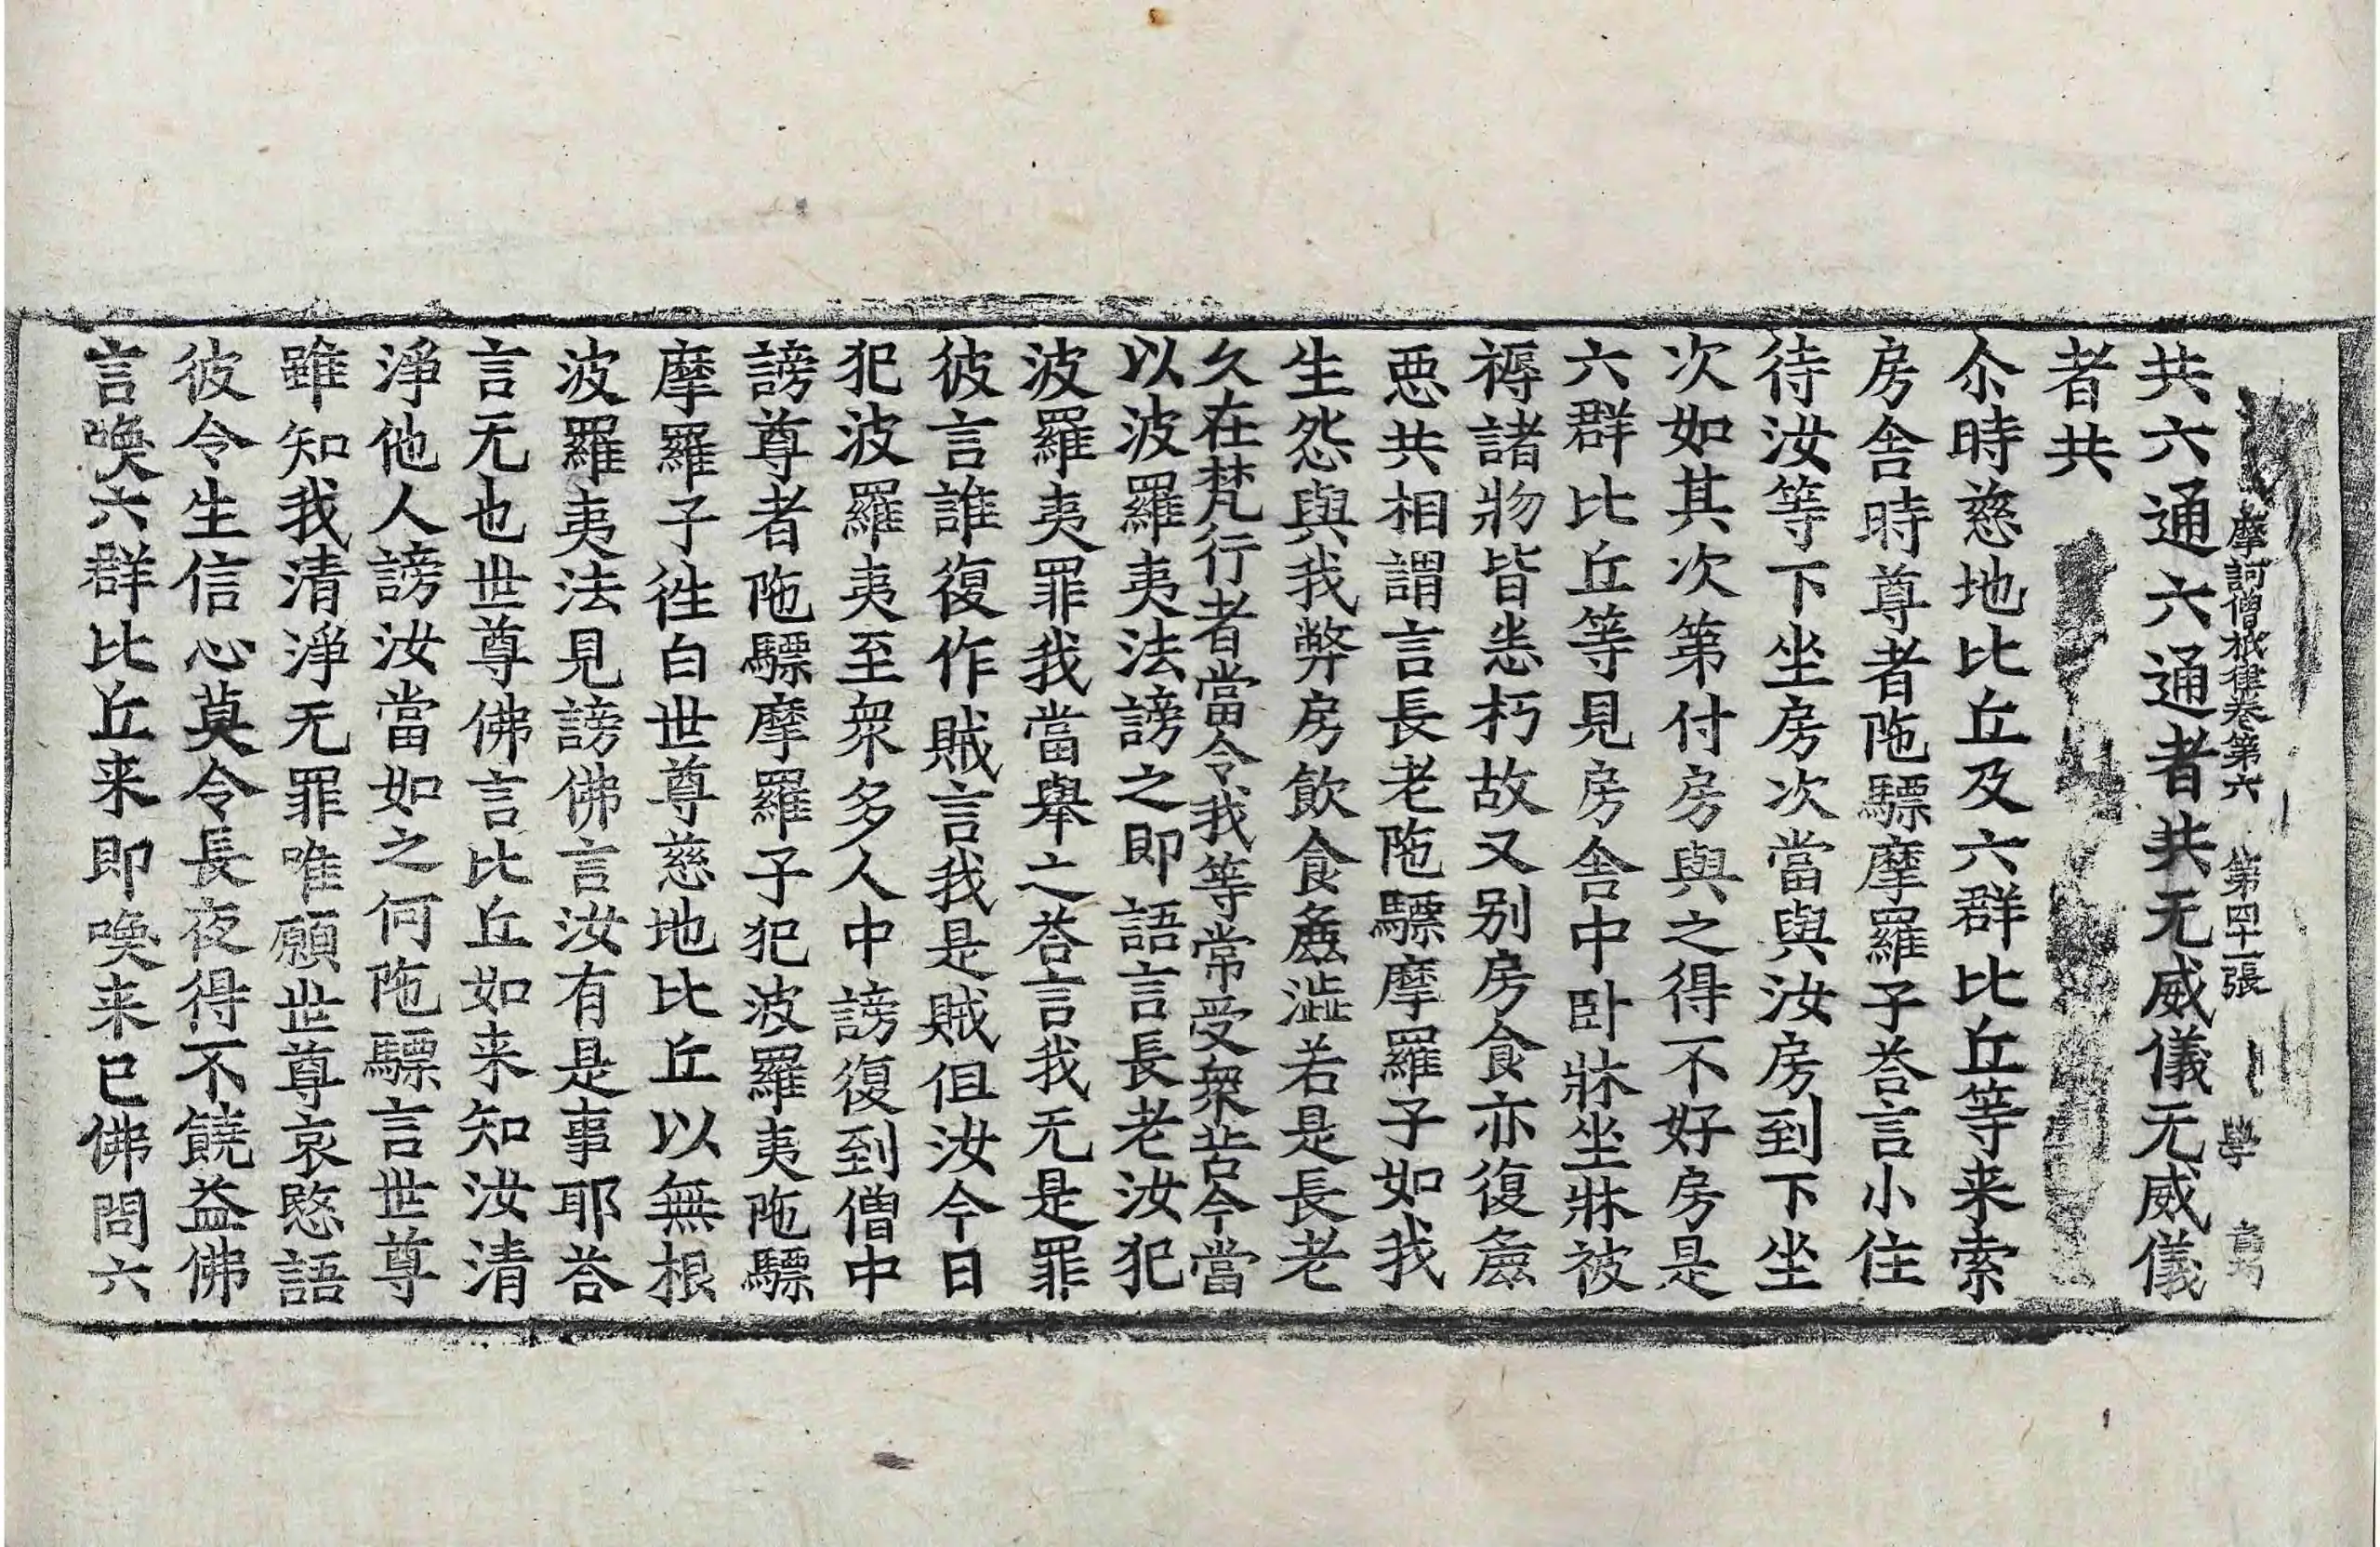 摩訶僧祇律卷第六 第四十一張 學
共六通六通者共无威儀无威儀
者共
尒時慈地比丘及六群比丘等来索
房舎時尊者陁驃摩羅子荅言小住
待汝等下坐房次當與汝房到下坐
次如其次第付房與之得不好房是
六群比丘等見房舎中卧牀坐牀被
褥諸物皆恙朽故又别房食亦復麁
悪共相謂言長老陁驃摩羅子如我
生怨與我弊房飲食麁澁若是長老
久在梵行者當令我等常受衆苦今當
以波羅夷法謗之即語言長老汝犯
波羅夷罪我當舉之荅言我无是罪
彼言誰復作賊言我是賊伹汝今日
犯波羅夷至衆多人中謗復到僧中
謗尊者陁驃摩羅子犯波羅夷陁驃
摩羅子徃白世尊慈地比丘以無根
波羅夷法見謗佛言汝有是事耶荅
言无也世尊佛言比丘如来知汝清
淨他人謗汝當如之何陁驃言世尊
雖知我清淨无罪唯願世尊哀愍語
彼令生信心莫令長夜得不饒益佛
言喚六群比丘来即喚来已佛問六